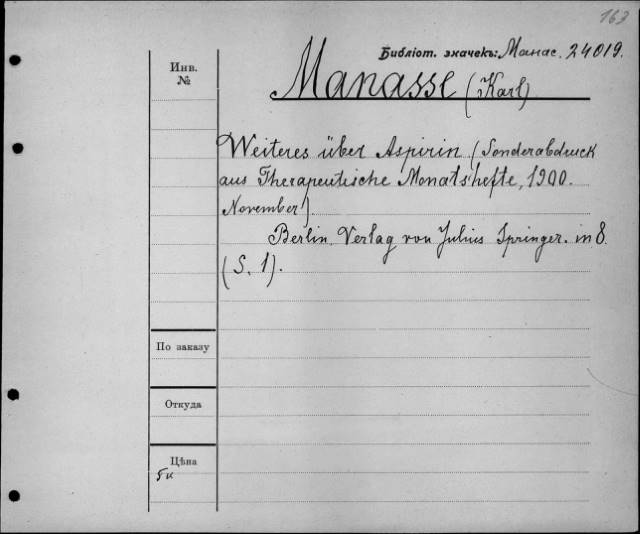 163
Библіот. значекъ: Манас. 24019.
Инв.
№
Manasse (Karl)
Weiteres über Aspirin (Sonderabdruck
aus Therapeutische Monatshefte, 1900.
November).
Berlin. Verlag von Julius Springer. in 8.
(S. 1).
По заказу
Откуда
Цѣна
5к